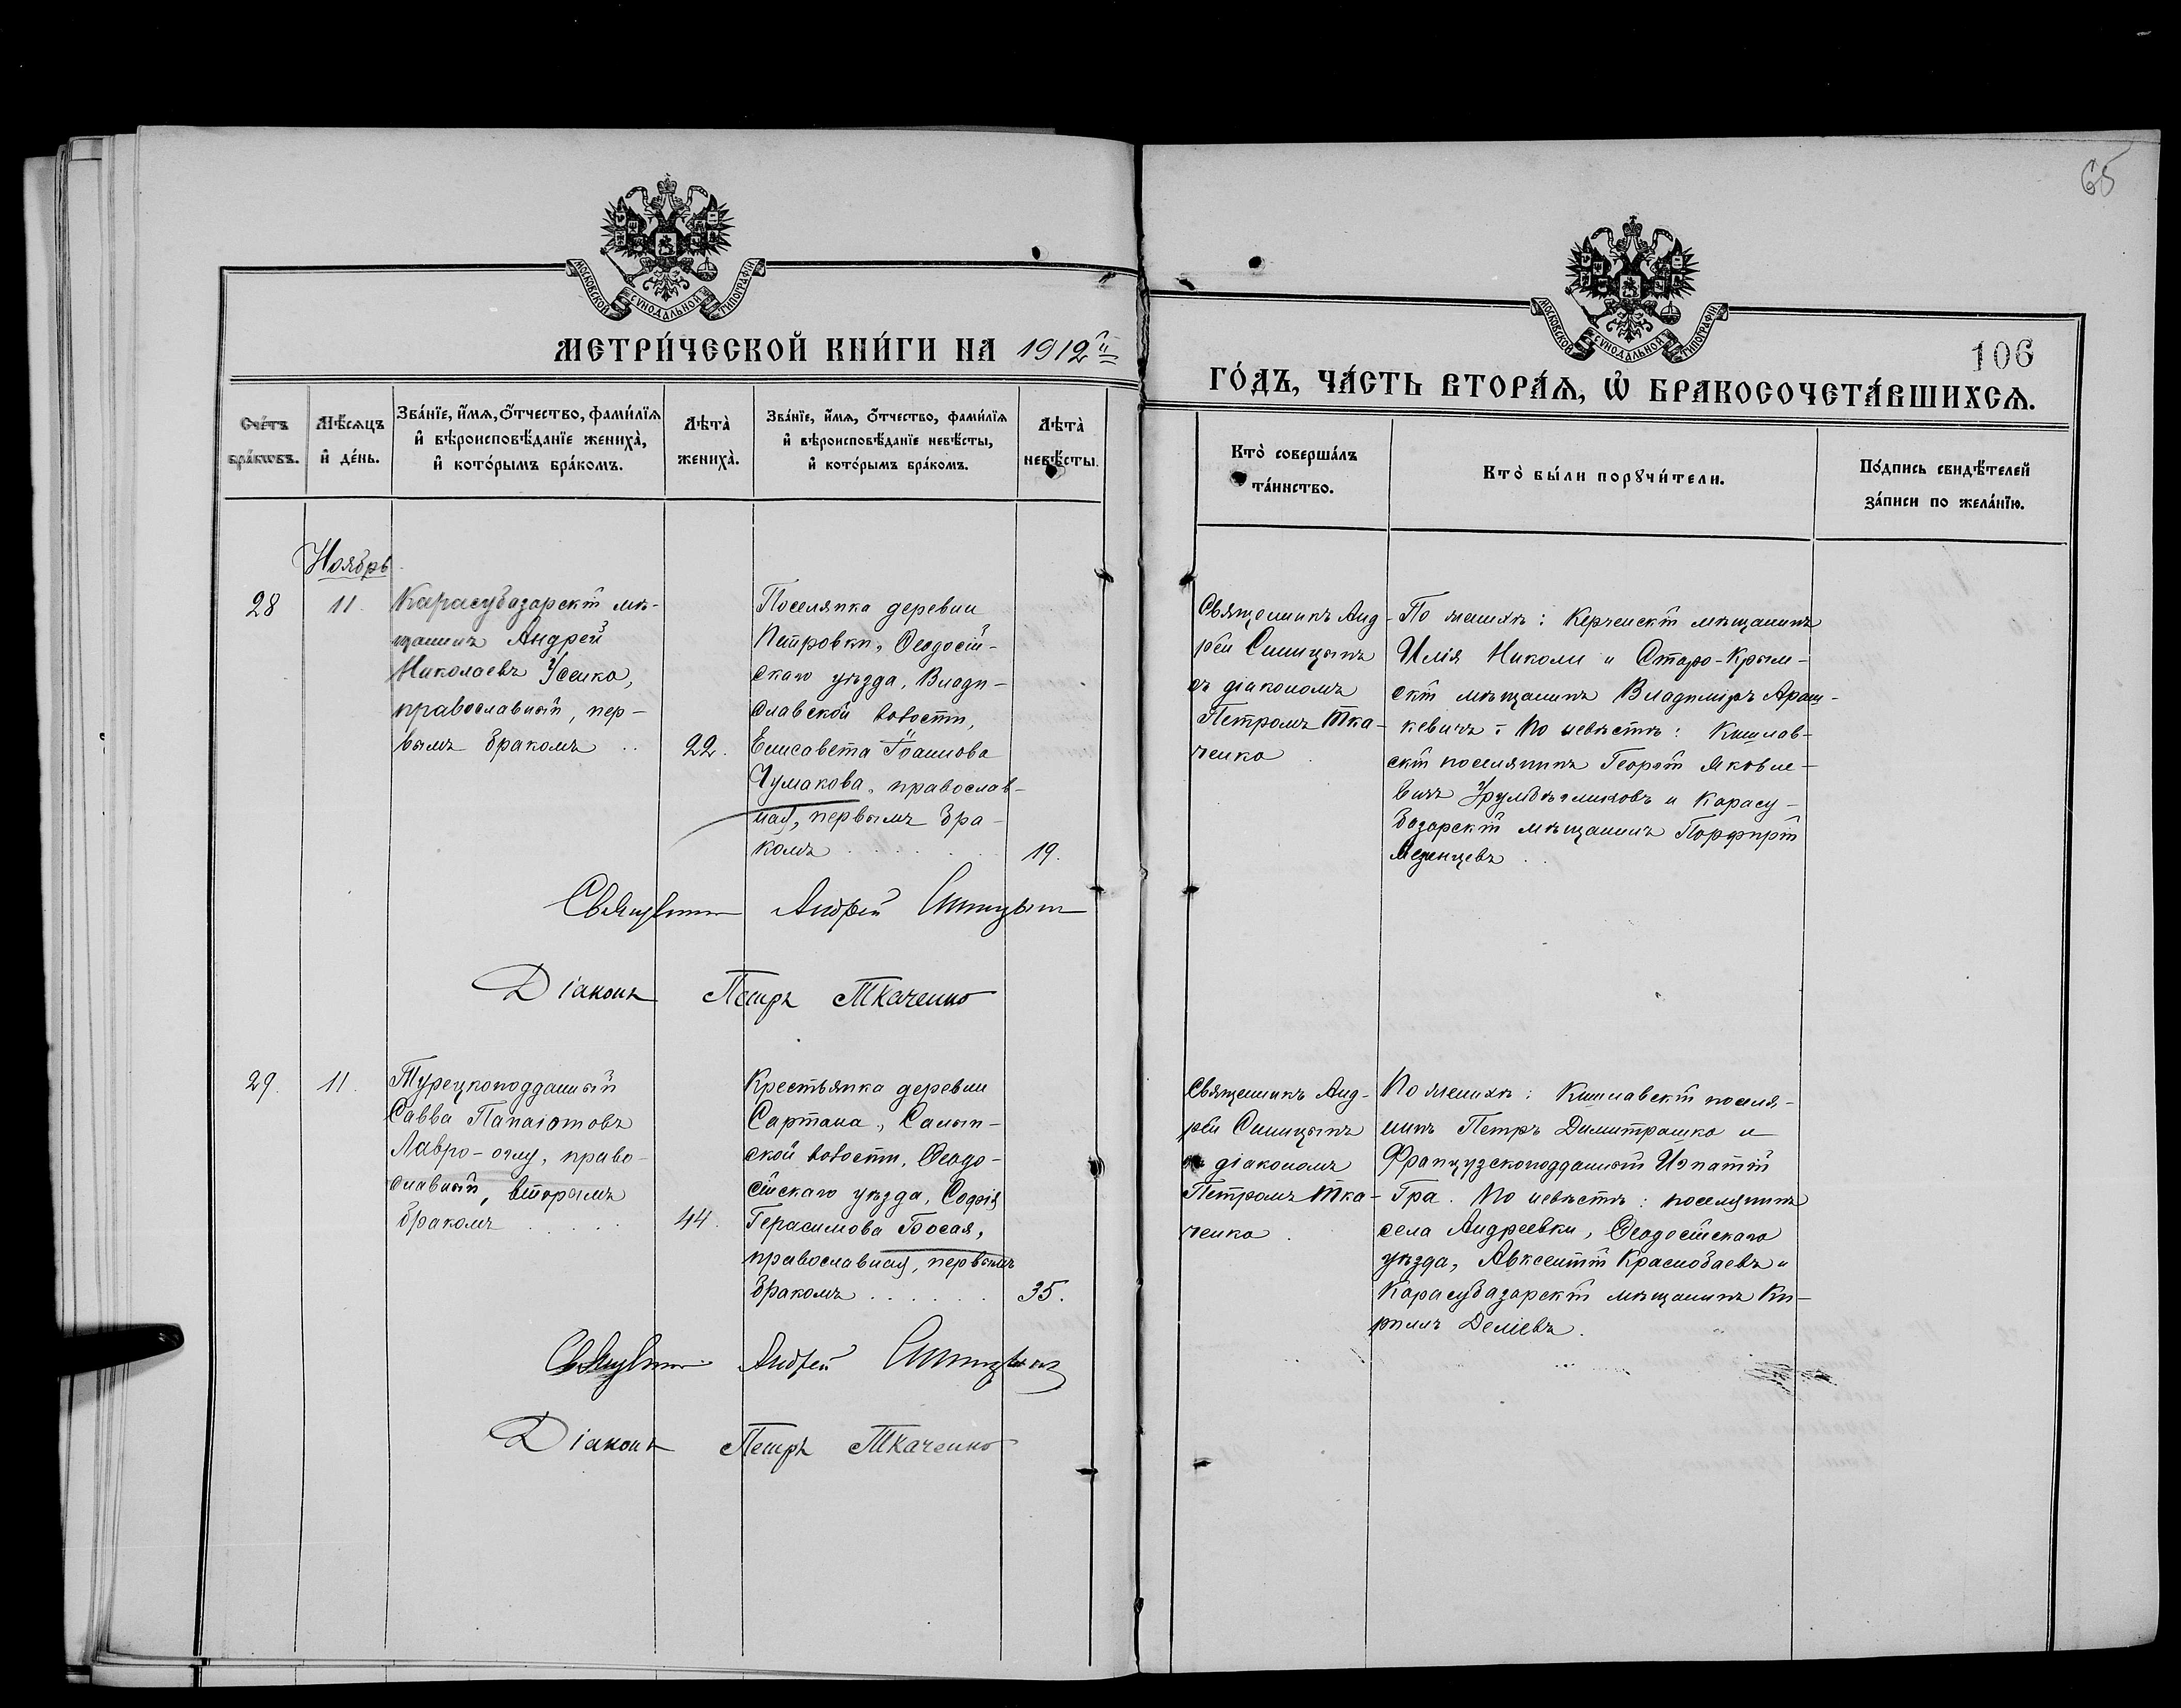 65
МОСКОВСКОЙ СѴНОДАЛЬНОЙ ТИПОГРАФІИ
МОСКОВСКОЙ СѴНОДАЛЬНОЙ ТИПОГРАФІИ
МЕТРИ́ЧЕСКОЙ КНИ́ГИ НА 1912й
106
ГО́ДЪ, ЧА́СТЬ ВТОРА́Я, Ѿ БРАКОСОЧЕТА́ВШИХСЯ.
Сче́тъ бра́кѡвъ.
Мѣ́сяцъ и де́нь.
Зва́нїе, и́мя, о́тчество, фами́лїя
и вѣроисповѣ́данїе жениха̀,
и кото́рымъ бра́комъ.
Лѣта̀ жениха̀.
Зва́нїе, и́мя, о́тчество, фами́лїя
и вѣроисповѣ́данїе невѣ́сты,
и кото́рымъ бра́комъ.
Лѣта̀ невѣ́сты.
Кто̀ соверша́лъ
та́инство.
Кто̀ бы́ли порꙋчи́тели.
По́дпись свидѣ́телей
за́писи по жела́нїю.
Ноябрь
28
11.
Карасубазарскій мѣ-
щанинъ Андрей
Николаевъ Усенко,
православный, пер-
вымъ бракомъ . .
22.
Поселянка деревни
Петровки, Ѳеодосій-
скаго уѣзда, Влади-
славской волости,
Елисавета Іоаннова
Чумакова, православ-
ная, первымъ бра-
комъ . . . . . .
19.
Священникъ Анд-
рей Синицынъ
съ діакономъ
Петромъ Тка-
ченко .
По женихѣ: Керченскій мѣщанинъ
Илія Николи и Старо-Крым-
скій мѣщанинъ Владиміръ Араш-
кевичъ. По невѣстѣ: Кишлав-
скій поселянинъ Георгій Яковле-
вичъ и Карасу-
базарскій мѣщанинъ Порфирій
Мезенцевъ . .
Священникъ Андрей Синицынъ
Діаконъ Петръ Ткаченко
29.
11.
Турецкоподданный
Савва Папаіотовъ
Лавро-оглу, право-
славный, вторымъ
бракомъ . . . .
44.
Крестьянка деревни
Сартана, Салын-
ской волости, Ѳеодо-
сійскаго уѣзда, Софія
Герасимова Босая,
православная, первымъ
бракомъ . . . . . .
35.
Священникъ Анд-
рей Синицынъ
съ діакономъ
Петромъ Тка-
ченко .
По женихѣ: Кишлавскій поселя-
нинъ Петръ Димитрашко и
Французскоподданный Игнатій
Гра. По невѣстѣ: поселянинъ
села Андреевки, Ѳеодосійскаго
уѣзда, Авксентій Краснобаевъ и
Карасубазарскій мѣщанинъ Ки-
риллъ Деліевъ.
Священникъ Андрей Синицынъ
Діаконъ Петръ Ткаченко